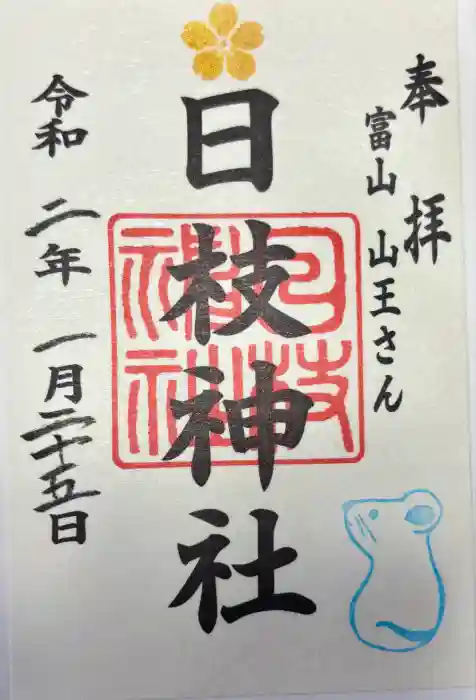 奉拝
富山 山王さん
日枝神社
令和 二年 一月二十五日